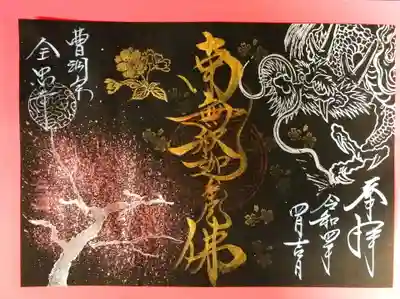 奉拝
令和四年
四月吉日
南無釈迦牟尼佛
曹洞宗
全昌寺